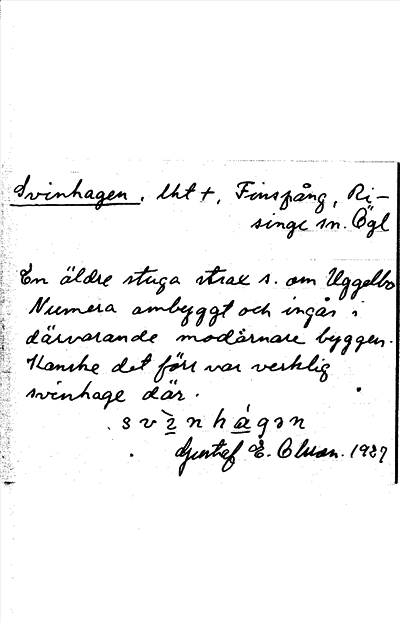 Svinhagen, lht +, Finspång, Ri-
singe sn. Ögl
En äldre stuga strax s. om Uggelbo
Numera ombyggt och ingår i
därvarande modärnare byggen.
Kanske det förr var verklig
svinhage där.
svìnhágən
Gustaf E. Olsson. 1937